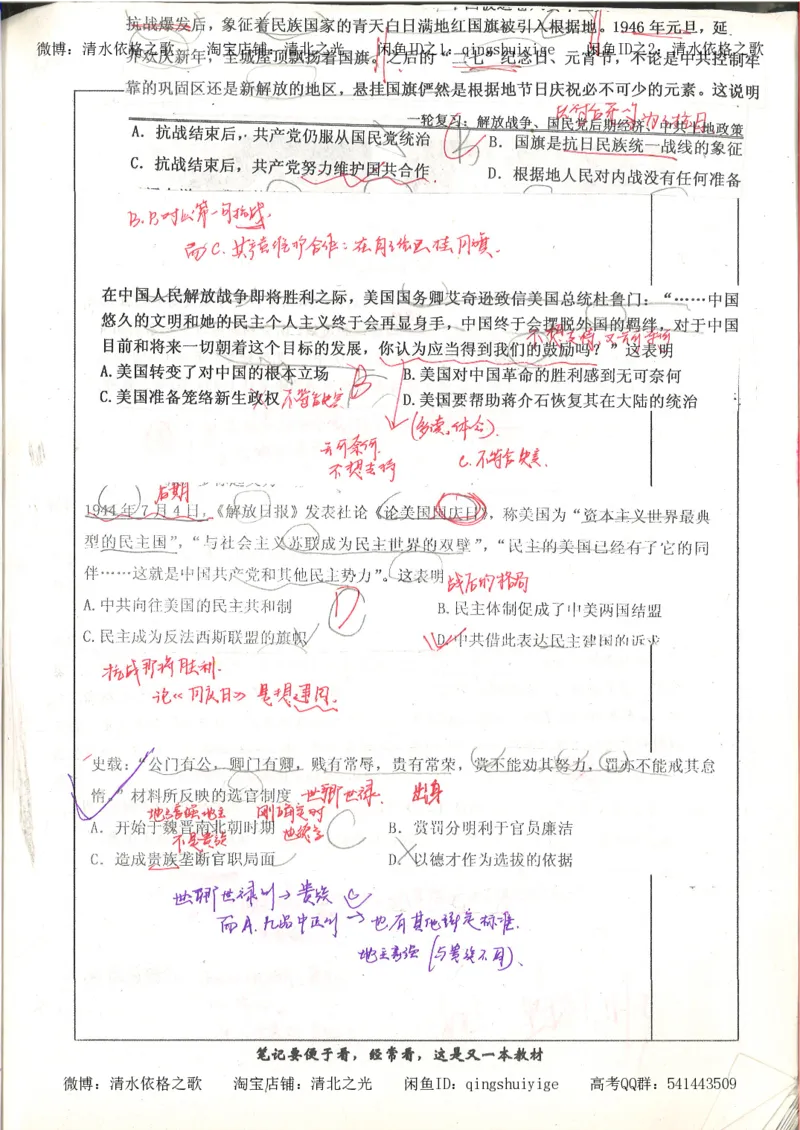 抗战爆发后，象征着民族国家的青天白日满地红国旗被引入根据地。1946年元旦，延
微博：清水依格之歌 淘宝店铺：清北之光 闲鱼ID之1：qingshuiyige 闲鱼ID之2：清水依格之歌
界欢庆新年，主城屋顶飘扬着国旗。之后的“二七”纪念日、元宵节，不论是中共控制牢
靠的巩固区还是新解放的地区，悬挂国旗俨然是根据地节日庆祝必不可少的元素。这说明
一轮复习：解放战争、国民党后期经济、中共土地政策
A．抗战结束后，共产党仍服从国民党统治
B．国旗是抗日民族统一战线的象征
C．抗战结束后，共产党努力维护国共合作
D．根据地人民对内战没有任何准备
B.B对应第一句抗战.
而C.共产党维护合作：在自己地区挂国旗.
在中国人民解放战争即将胜利之际，美国国务卿艾奇逊致信美国总统杜鲁门：“……中国
悠久的文明和她的民主个人主义终于会再显身手，中国终于会摆脱外国的羁绊，对于中国
目前和将来一切朝着这个目标的发展，你认为应当得到我们的鼓励吗？”这表明
A.美国转变了对中国的根本立场
B.美国对中国革命的胜利感到无可奈何
C.美国准备笼络新生政权
D.美国要帮助蒋介石恢复其在大陆的统治
B
(多读，体会).
不想支持
C.不符合史实.
后期
1944年7月4日，《解放日报》发表社论《论美国国庆日》，称美国为“资本主义世界最典
型的民主国”，“与社会主义苏联成为民主世界的双璧”，“民主的美国已经有了它的同
伴……这就是中国共产党和其他民主势力”。这表明
战后的格局
A.中共向往美国的民主共和制
D
B.民主体制促成了中美两国结盟
C.民主成为反法西斯联盟的旗帜
D.中共借此表达民主建国的诉求
抗战即将胜利.
论《国庆日》是想建国.
史载：“公门有公，卿门有卿，贱有常辱，贵有常荣，赏不能劝其努力，罚亦不能戒其怠
惰。”材料所反映的选官制度
世卿世禄. 出身
A．开始于魏晋南北朝时期
不是贵族
C
B．赏罚分明利于官员廉洁
C．造成贵族垄断官职局面
D．以德才作为选拔的依据
世卿世禄制→贵族 C
而A.九品中正制→也有其他评定标准.
地主豪强(与贵族不同).
笔记要便于看，经常看，这是又一本教材
微博：清水依格之歌 淘宝店铺：清北之光 闲鱼ID：qingshuiyige 高考QQ群：541443509